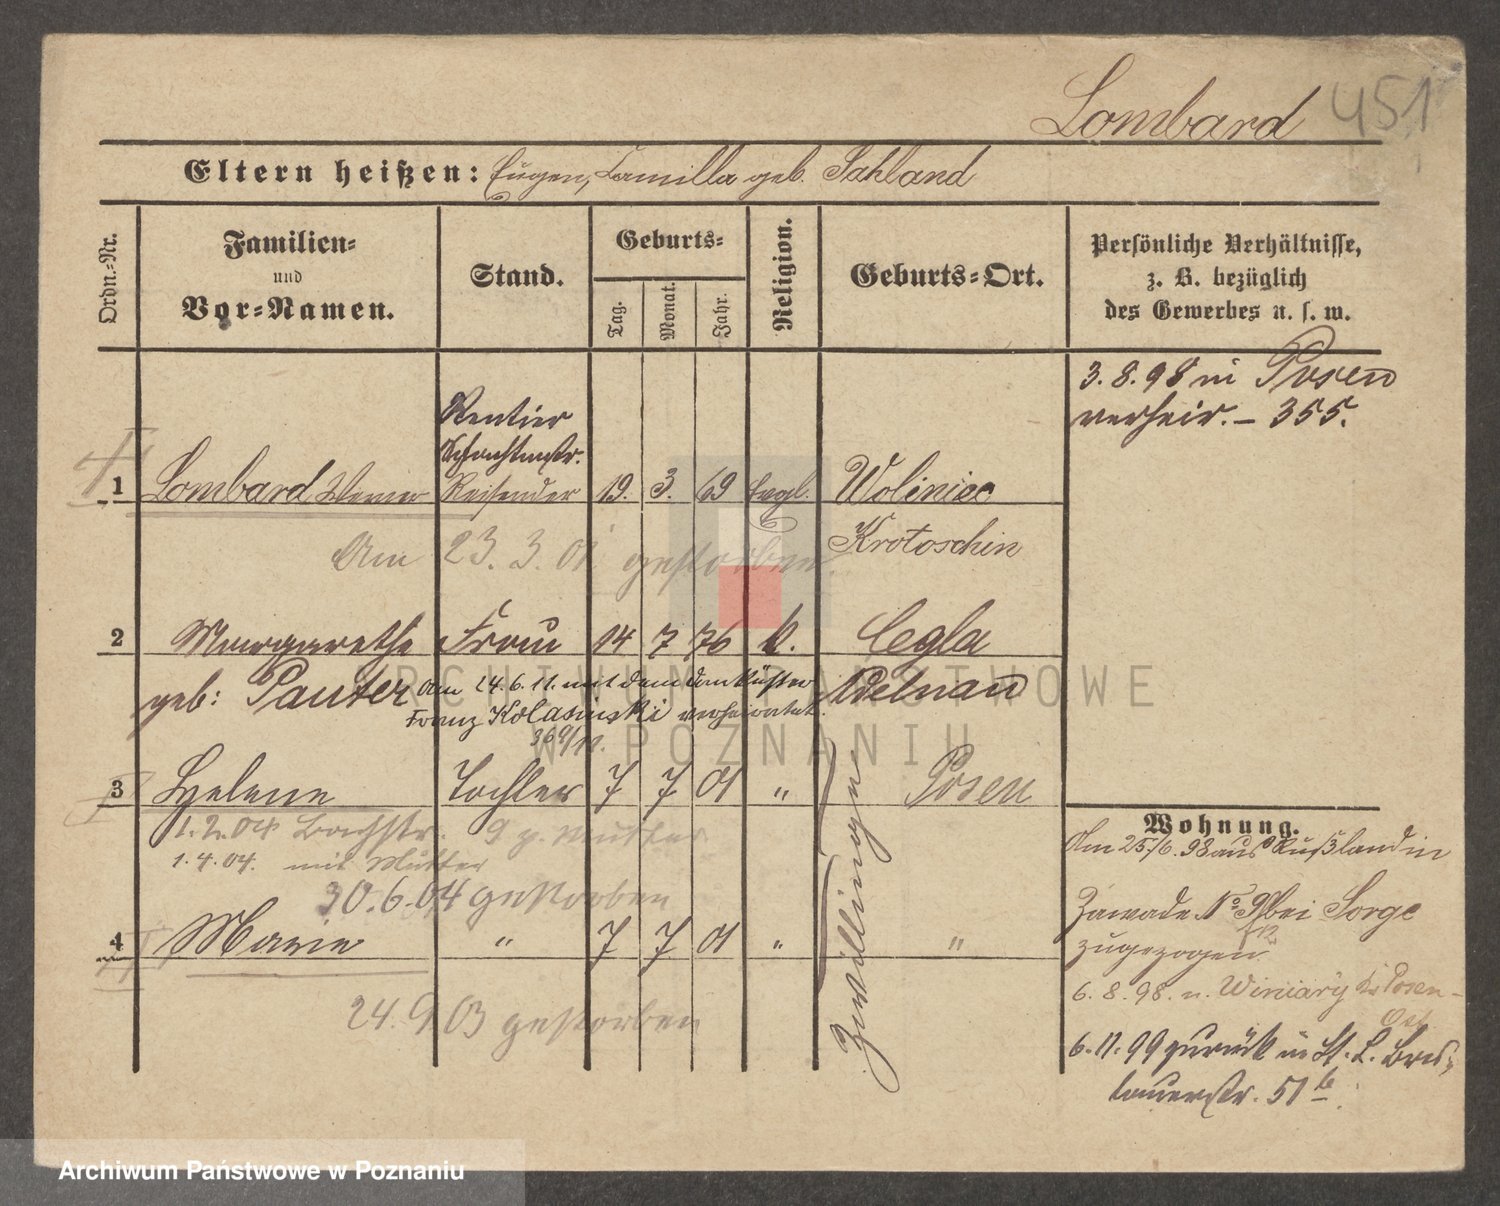 Lombard 451
Eltern heißen: Eugen, Camilla geb. Sahland
Ordn.-Nr.
Familien-
und
Vor-Namen.
Stand.
Geburts-
Tag.
Monat.
Jahr.
Religion.
Geburts-Ort.
Persönliche Verhältnisse,
z. B. bezüglich
des Gewerbes u. s. w.
3.8.98 in Posen
verheir. – 355.
Rentier
Schachtmstr.
1 Lombard Werner Reisender 19. 3. 69 Evgl. Woliniec
Krotoschin
Am 23.3.01 gestorben.
2 Margarethe Frau 14 7 76 k. Cegla
geb: Pauter Adelnau
am 24.6.11. mit dem
Franz Kolasinski verheiratet.
3 Helene Tochter 7 7 01 " Posen
1.2.04 Bachstr. 9 z. Mutter
1.4.04. mit Mutter
30.6.04 gestorben
4 Marie " 7 7 01 " "
24.9.03 gestorben
Zwillinge
Wohnung.
Am 25/6.98 aus Rußland in
Zawade No 9 bei Sorge
zugezogen
6.8.98. n. Winiary Kr. Posen-
Ost
6.11.99 zurück in St. L. Bres-
lauerstr. 51
ARCHIWUM PAŃSTWOWE
W POZNANIU
Archiwum Państwowe w Poznaniu